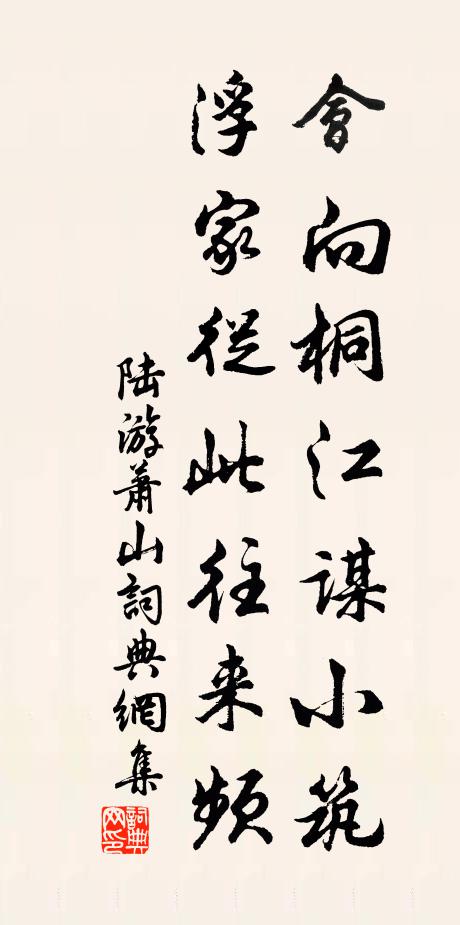 會向桐江謀小筑
浮家從此往来頻
陆游萧山詞典網集
詞典
网印